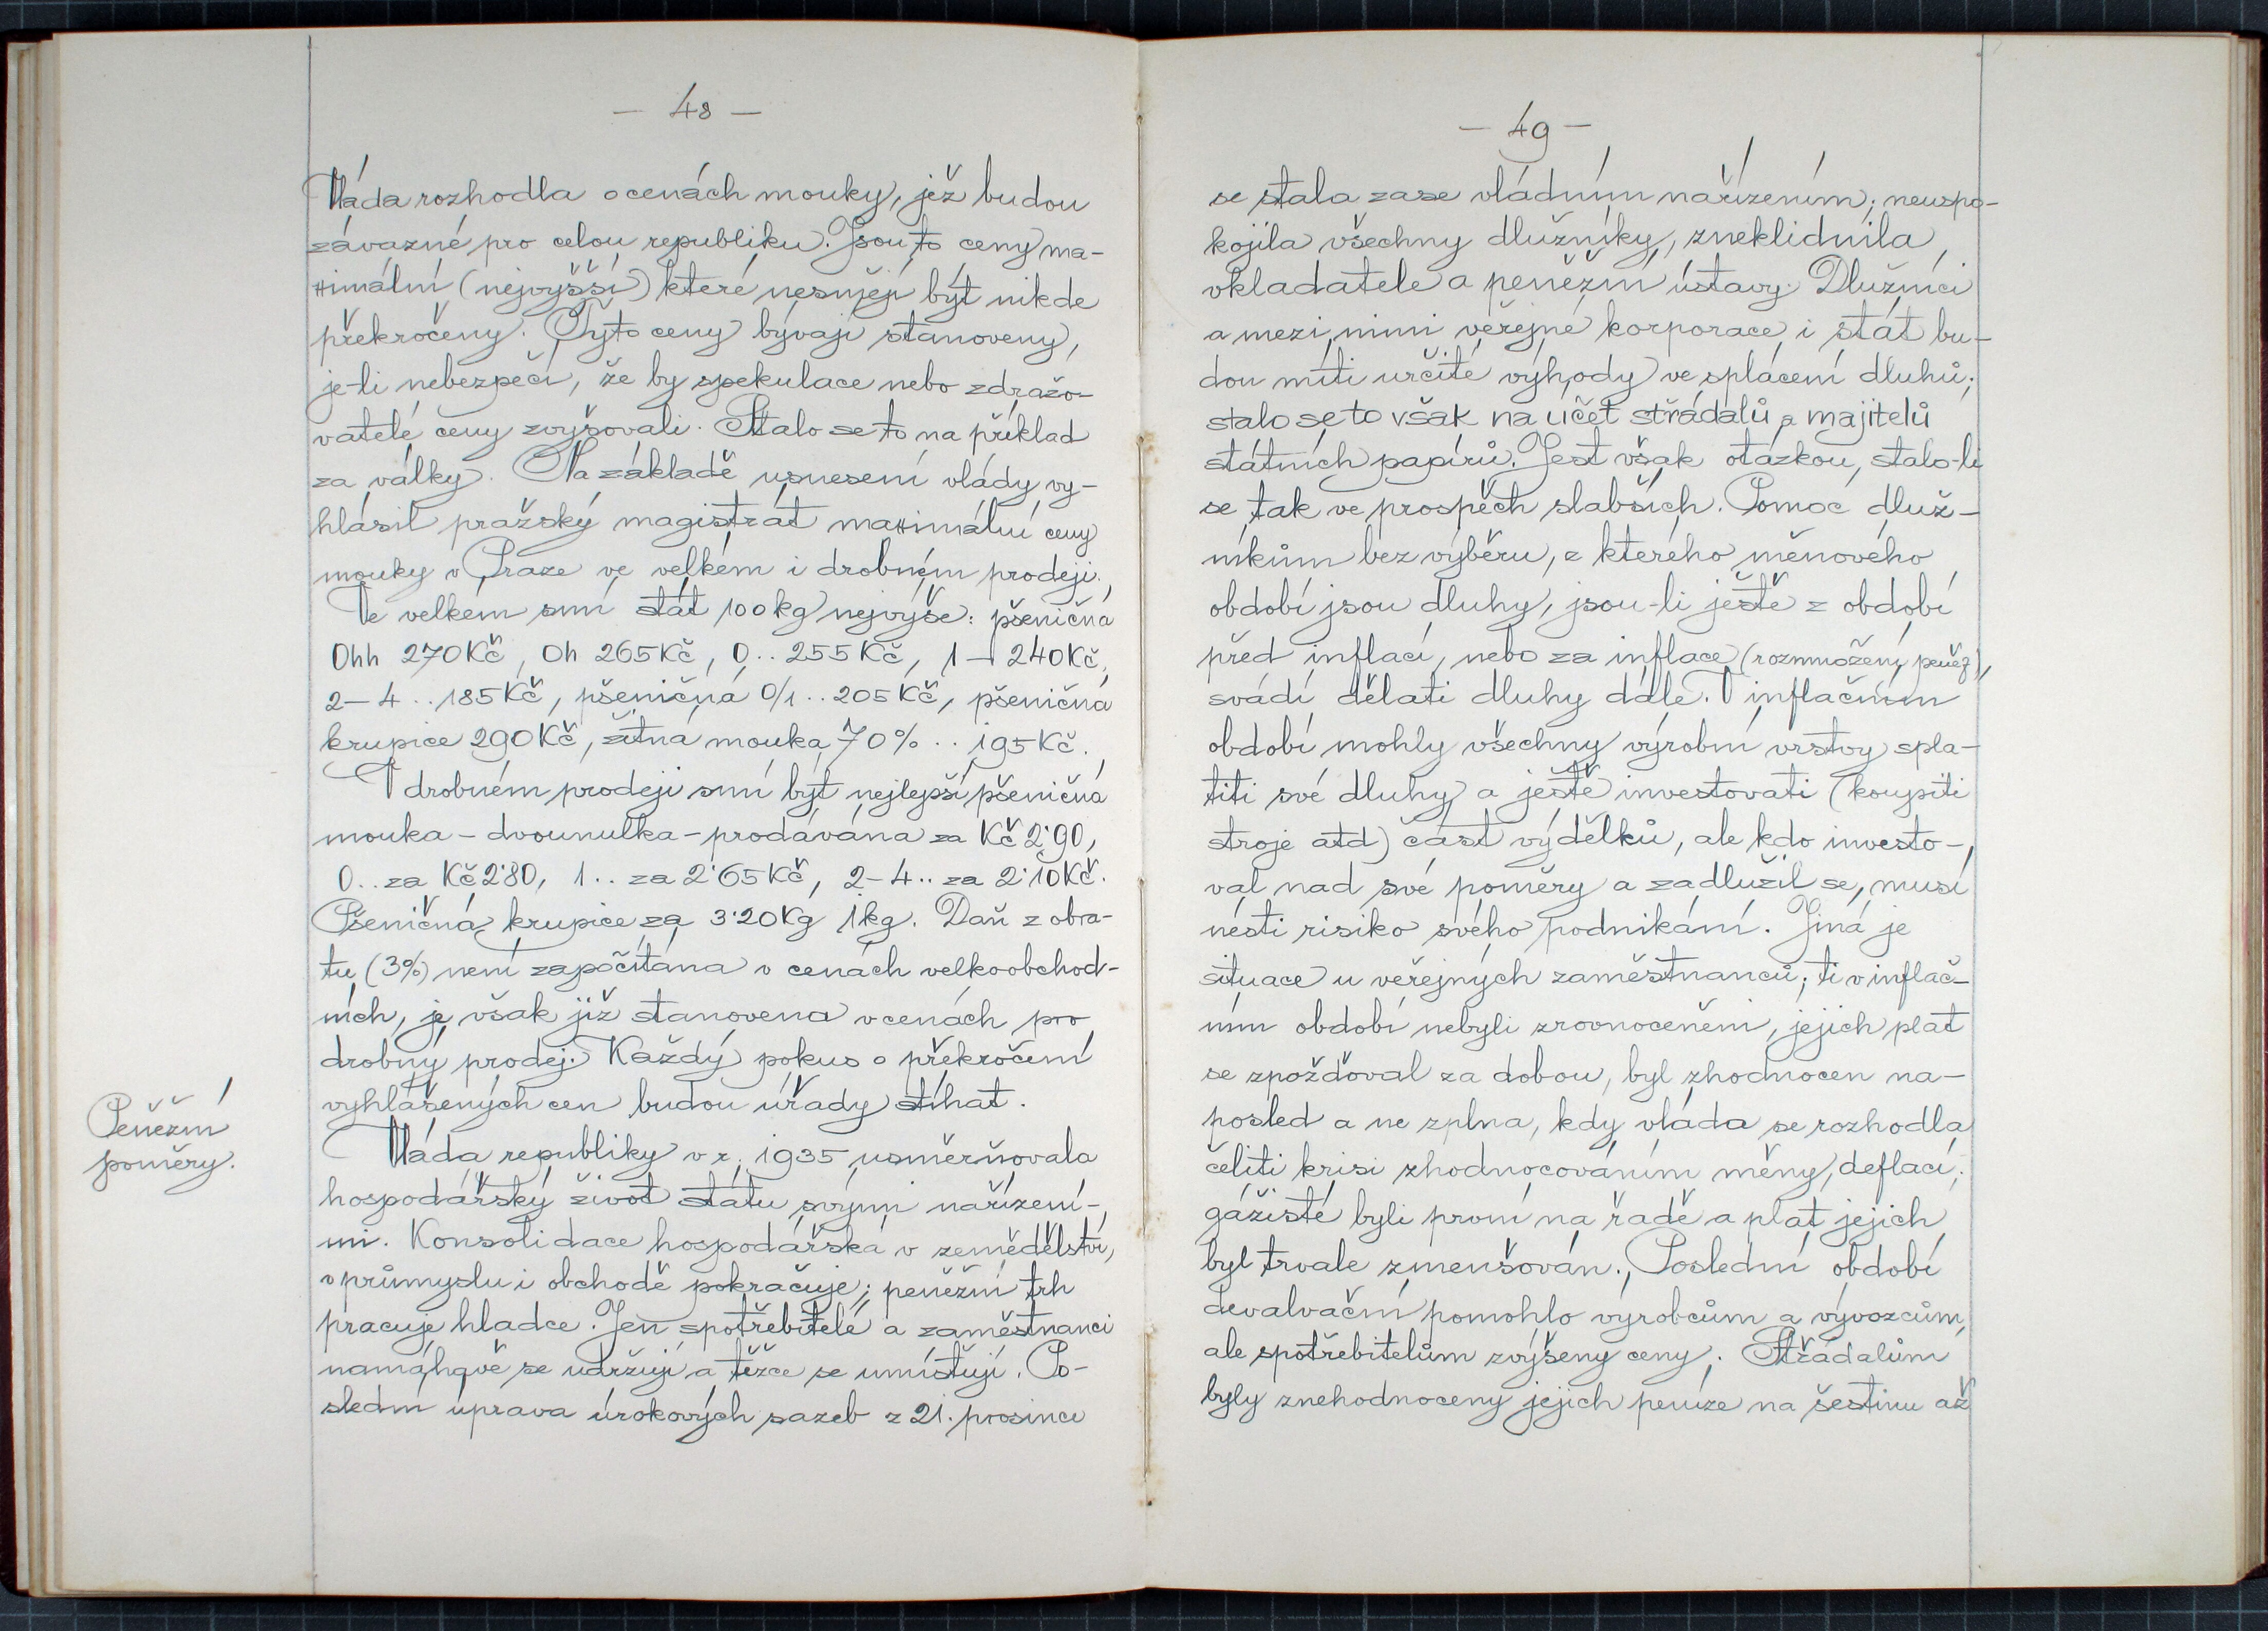 — 48 —
Vláda rozhodla o cenách mouky, jež budou
závazné pro celou republiku. Jsou to ceny ma-
ximální (nejvyšší) které nesmějí být nikde
překročeny. Tyto ceny bývají stanoveny,
je-li nebezpečí, že by spekulace nebo zdražo-
vatelé ceny zvyšovali. Stalo se to na příklad
za války. Na základě usnesení vlády vy-
hlásil pražský magistrát maximální ceny
mouky v Praze ve velkém i drobném prodeji.
Ve velkém smí stát 100 kg nejvýše: pšeničná
0hh 270 Kč, 0h 265 Kč, 0.. 255 Kč, 1 — 240 Kč,
2–4.. 185 Kč, pšeničná 0/1.. 205 Kč, pšeničná
krupice 290 Kč, žitná mouka 70%.. 195 Kč.
V drobném prodeji smí být nejlepší pšeničná
mouka – dvounulka – prodávána za Kč 2·90,
0.. za Kč 2·80, 1.. za 2·65 Kč, 2–4.. za 2·10 Kč.
Pšeničná krupice za 3·20 Kg 1 kg. Daň z obra-
tu (3%) není započítána v cenách velkoobchod-
ních, je však již stanovena v cenách pro
drobný prodej. Každý pokus o překročení
vyhlášených cen budou úřady stíhat.
Peněžní
poměry.
Vláda republiky v r. 1935 usměrňovala
hospodářský život státu svými nařízení-
mi. Konsolidace hospodářská v zemědělství,
v průmyslu i obchodě pokračuje; peněžní trh
pracuje hladce. Jen spotřebitelé a zaměstnanci
namáhavě se udržují a těžce se umísťují. Po-
slední úprava úrokových sazeb z 21. prosince
— 49 —
se stala zase vládním nařízením; neuspo-
kojila všechny dlužníky, zneklidnila
vkladatele a peněžní ústavy. Dlužníci
a mezi nimi veřejné korporace i stát bu-
dou míti určité výhody ve splácení dluhů;
stalo se to však na účet střádalů a majitelů
státních papírů. Jest však otázkou, stalo-li
se tak ve prospěch slabších. Pomoc dluž-
níkům bez výběru, z kterého měnového
období jsou dluhy, jsou-li ještě z období
před inflací, nebo za inflace (rozmnožení peněz),
svádí dělati dluhy dále. V inflačním
období mohly všechny výrobní vrstvy spla-
titi své dluhy a ještě investovati (koupiti
stroje atd) část výdělků, ale kdo investo-
val nad své poměry a zadlužil se, musí
nésti risiko svého podnikání. Jiná je
situace u veřejných zaměstnanců; ti v inflač-
ním období nebyli zrovnoceněni, jejich plat
se zpožďoval za dobou, byl zhodnocen na-
posled a ne zplna, kdy vláda se rozhodla
čeliti krisi zhodnocováním měny, deflací;
gážisté byli první na řadě a plat jejich
byl trvale zmenšován. Poslední období
devalvační pomohlo výrobcům a vývozcům,
ale spotřebitelům zvýšeny ceny. Střádalům
byly znehodnoceny jejich peníze na šestinu až